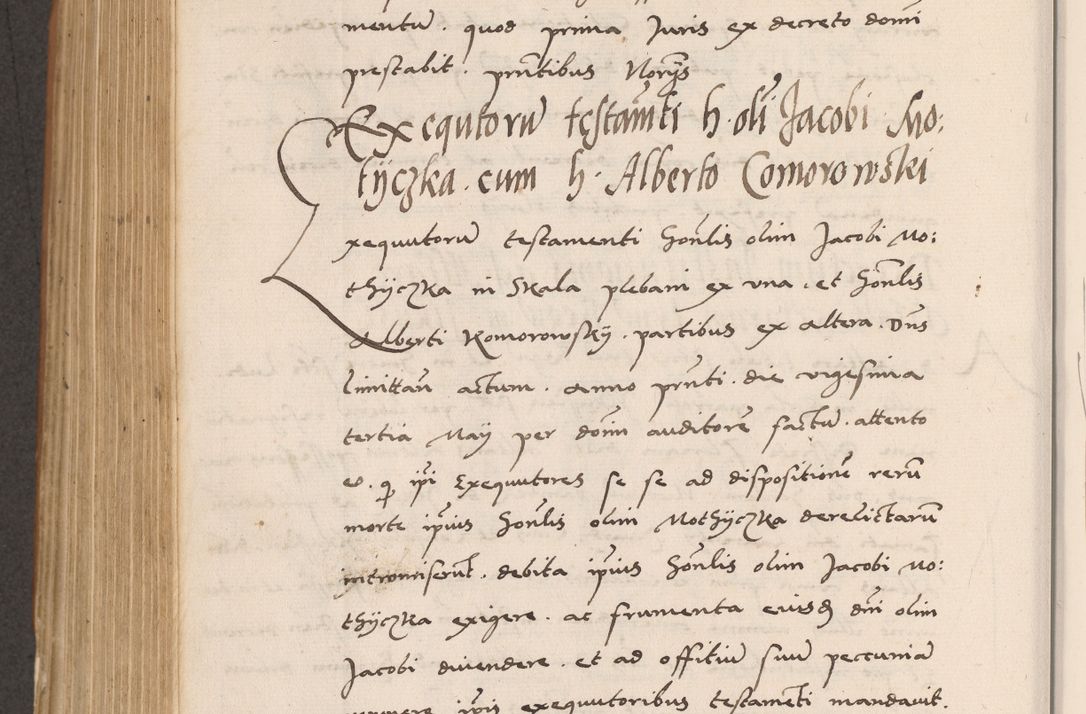 mentu̅ . quod prima Juris ex decreto domi̅
prestabit . pru̅tibus Norijs
Exequtoru̅ testam̅ti h. oli̅ Jacobi Mo:
tÿczka . cum h. Alberto Comorowski
xequutoru̅ testamenti Hon̅lis olim Jacobi Mo:
thÿczka in Skala plebani ex vna . et Hon̅lis
Alberti Komorowskÿ . partibus ex altera . Dn̅s
limittan̅ actum . anno pru̅ti . die vigesima
tertia Maÿ per domi̅ auditore̅ factu̅ . attento
eo . q̨ ip̅i Exequutores se se ad dispositione̅ reru̅
morte ip̅ius Hon̅lis olim Mothÿczka derelictaru̅
intromiseru̅t . debita ip̅ius Hon̅lis olim Jacobi Mo:
thÿczka exigere . ac frumenta eiusd̨ dn̅i olim
Jacobi diuendere . et ad offitiu̅ suu̅ peccunia̅
ip̅is exequutoribus testame̅ti mandauit.